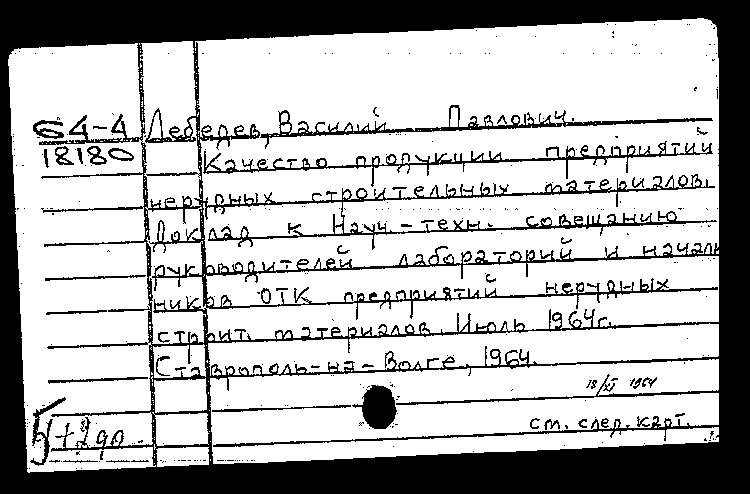 64-4 Лебедев, Василий Павлович.
18180 Качество продукции предприятий
нерудных строительных материалов.
Доклад к Науч-техн. совещанию
руководителей лабораторий и началь
ников ОТК предприятий нерудных
строит. материалов. Июль 1964г.
Ставрополь-на-Волге, 1964.
18/XI 1964
см. след. карт.